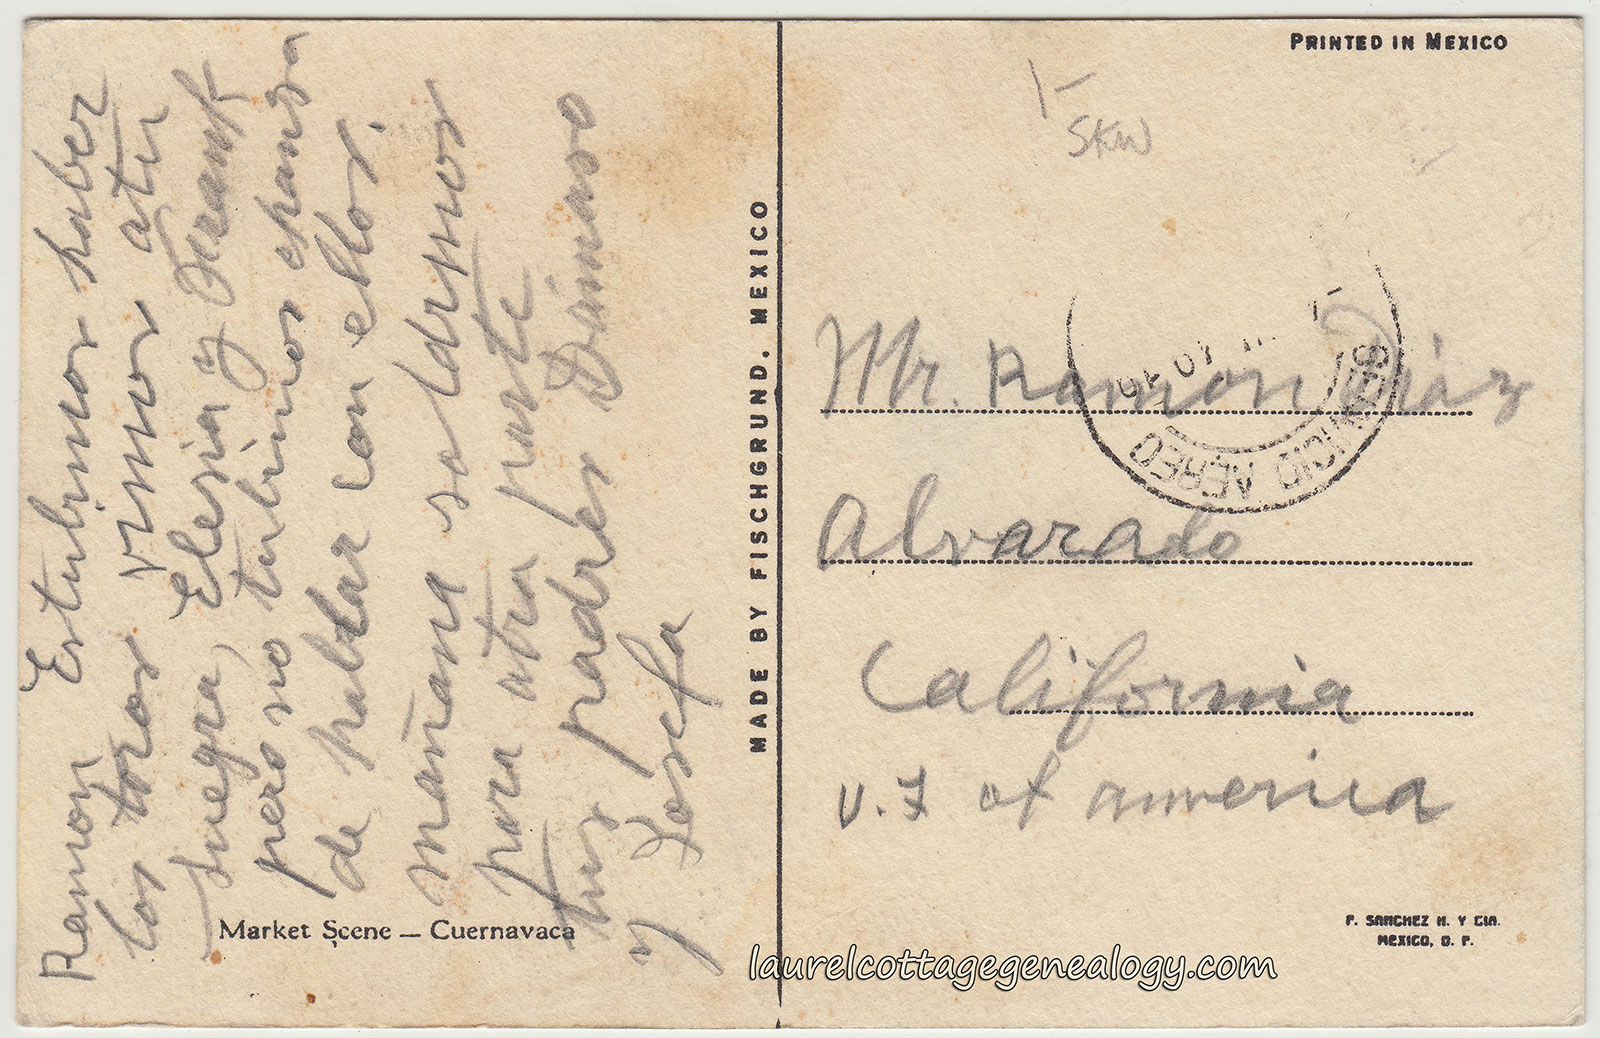 Ramon Estubimos haber
los toros vimos atu
suegra, Elesia y Frank
pero no tubimos chansa
de hablar con ellos.
mañana saldremos
para otra parte
tus padres Dámaso
y Josefa
Market Scene — Cuernavaca
MADE BY FISCHGRUND. MEXICO
PRINTED IN MEXICO
SKW
SERVICIO AEREO
Mr. Ramon Diaz
Alvarado
California
U.S of America
F. SANCHEZ H. Y CIA.
MEXICO, D. F.
laurelcottagegenealogy.com